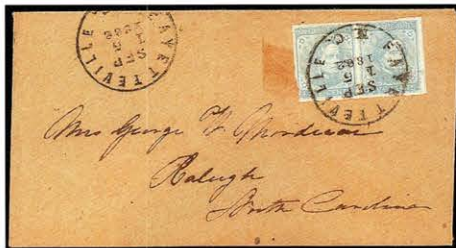 FAYETTEVILLE
SEP
15
FAYETTEVILLE N.C.
SEP
15
Mrs George W Mordecai
Raleigh
North Carolina